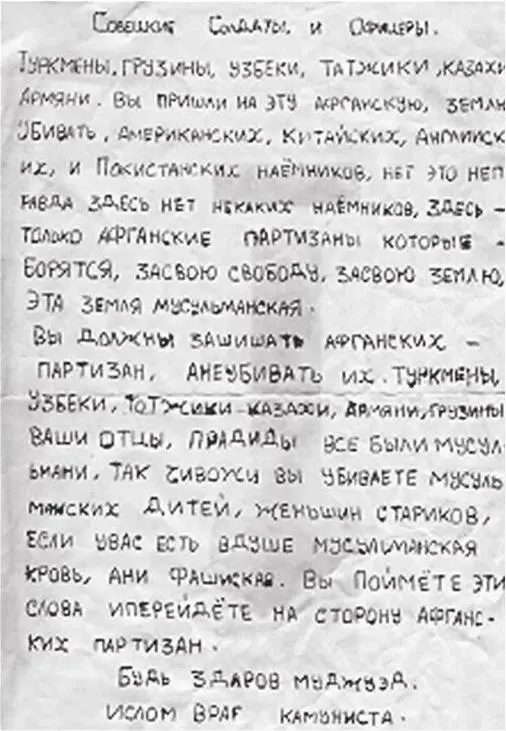 Совешкие Солдаты, и Официеры.
Туркмены, грузины, узбеки, татжики, казахи
Армяни. Вы пришли на эту афганскую, землю
убивать, американских, китайских, английск
их, и покистанских наёмников, нет это неп
равда здесь нет некаких наёмников, здесь –
только афганские партизаны которые –
борятся, засвою свободу, засвою землю,
эта земля мусульманская.
Вы должны зашишать афганских –
партизан, анеубивать их. Туркмены,
узбеки, тотжики казахи, армяни, грузины
ваши отцы, прадиды все были мусул-
ьмани, так чивожи вы убиваете мусуль
манских дитей, женьшин стариков,
если увас есть вдуше мусульманская
кровь, ани фашиская. Вы поймёте эти
слова иперейдёте на сторону афганс-
ких партизан.
Будь здаров муджуэд.
Ислом враг камуниста.